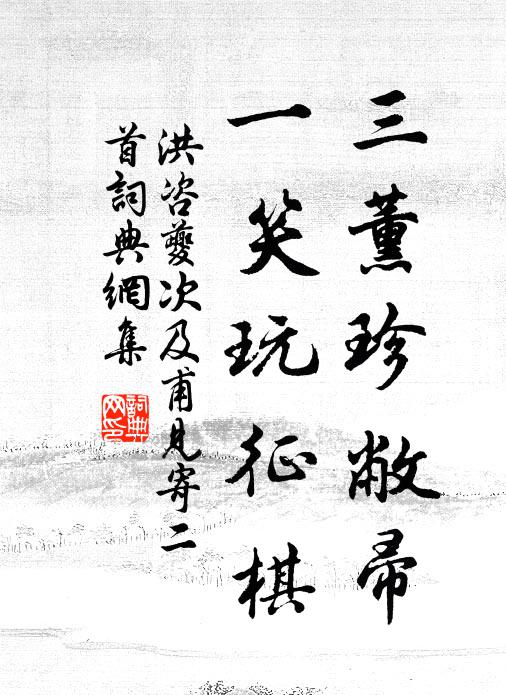 三薰珍敝帚
一笑玩征棋
洪咨夔次及甫見寄二
首詞典網集
詞典
网印